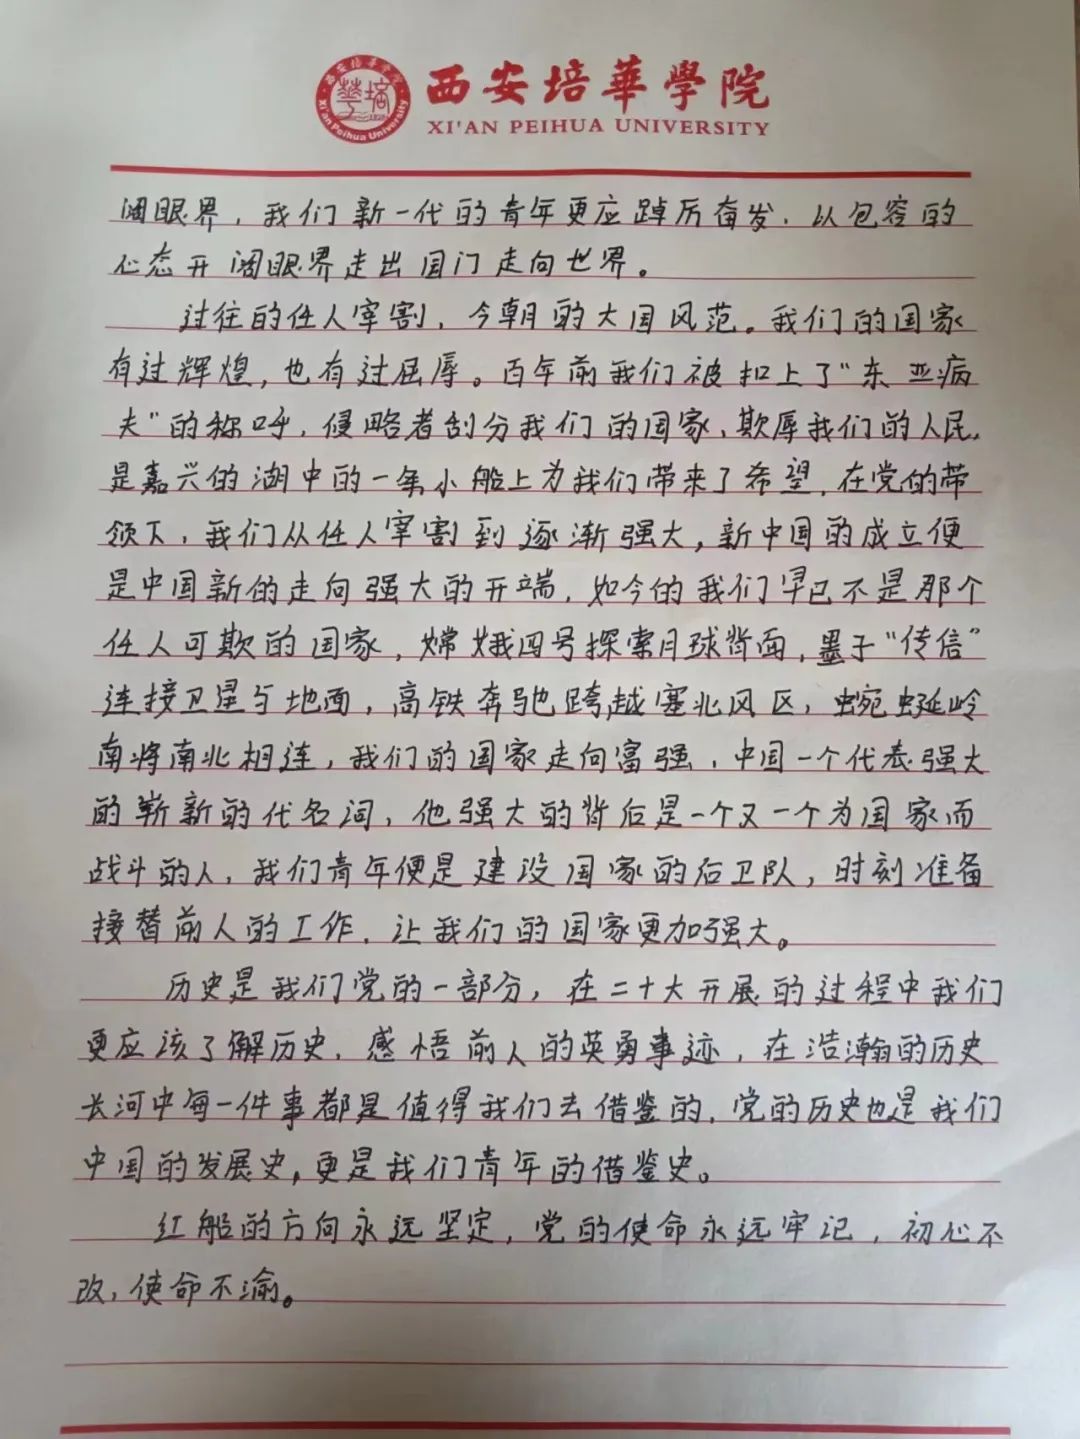 西安培華學院
XI'AN PEIHUA UNIVERSITY
西安培華学院
Xi'an Peihua University
阔眼界，我们新一代的青年更应踔厉奋发，以包容的
心态开阔眼界走出国门走向世界。
过往的任人宰割，今朝的大国风范。我们的国家
有过辉煌，也有过屈辱。百年前我们被扣上了“东亚病
夫”的称呼，侵略者刮分我们的国家，欺辱我们的人民，
是嘉兴的湖中的一条小船上为我们带来了希望，在党的带
领下，我们从任人宰割到逐渐强大，新中国的成立便
是中国新的走向强大的开端，如今的我们早已不是那个
任人可欺的国家，嫦娥四号探索月球背面，墨子“传信”
连接卫星与地面，高铁奔驰跨越塞北风区，蜿蜒岭
南将南北相连，我们的国家走向富强，中国一个代表强大
的崭新的代名词，他强大的背后是一个又一个为国家而
战斗的人，我们青年便是建设国家的后卫队，时刻准备
接替前人的工作，让我们的国家更加强大。
历史是我们党的一部分，在二十大开展的过程中我们
更应该了解历史，感悟前人的英勇事迹，在浩瀚的历史
长河中每一件事都是值得我们去借鉴的，党的历史也是我们
中国的发展史，更是我们青年的借鉴史。
红船的方向永远坚定，党的使命永远牢记，初心不
改，使命不渝。